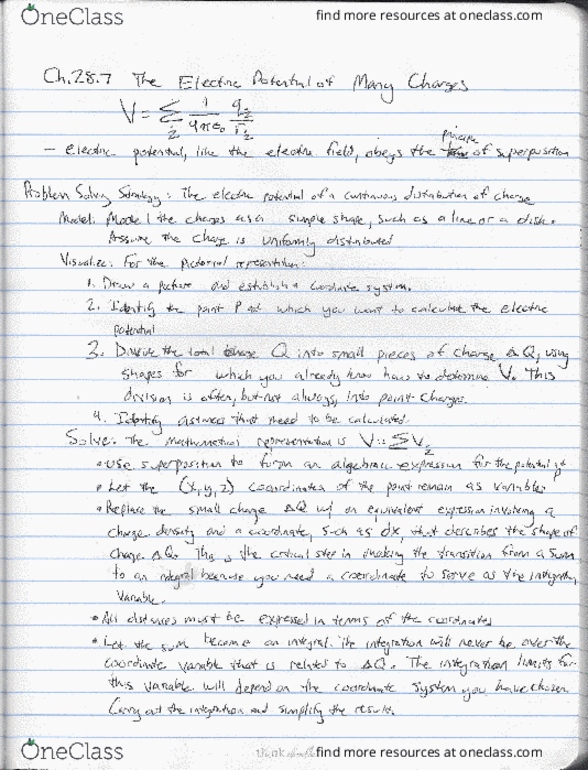 OneClass find more resources at oneclass.com
Ch.28.7 The Electric Potential of Many Charges
V = Σ i 1/4πε₀ qi/ri
- electric potential, like the electric field, obeys the principle of superposition
Problem Solving Strategy: The electric potential of a continuous distribution of charge
Model: Model the charges as a simple shape, such as a line or a disk.
Assume the charge is uniformly distributed
Visualize: For the pictorial representation:
1. Draw a picture and establish a coordinate system.
2. Identify the point P at which you want to calculate the electric
potential
3. Divide the total charge Q into small pieces of charge ΔQ, using
shapes for which you already know how to determine V. This
division is often, but not always, into point charges.
4. Identify distances that need to be calculated.
Solve: The mathematical representation is V = ΣVi
• Use superposition to form an algebraic expression for the potential at
• Let the (x,y,z) coordinates of the point remain as variables
• Replace the small charge ΔQ w/ an equivalent expression involving a
charge density and a coordinate, such as dx, that describes the shape of
charge ΔQ. This is the critical step in making the transition from a sum
to an integral because you need a coordinate to serve as the integration
variable.
• All distances must be expressed in terms of the coordinates
• Let the sum become an integral. The integration will never be over the
coordinate variable that is related to ΔQ. The integration limits for
this variable will depend on the coordinate system you have chosen.
Carry out the integration and simplify the results.
OneClass find more resources at oneclass.com